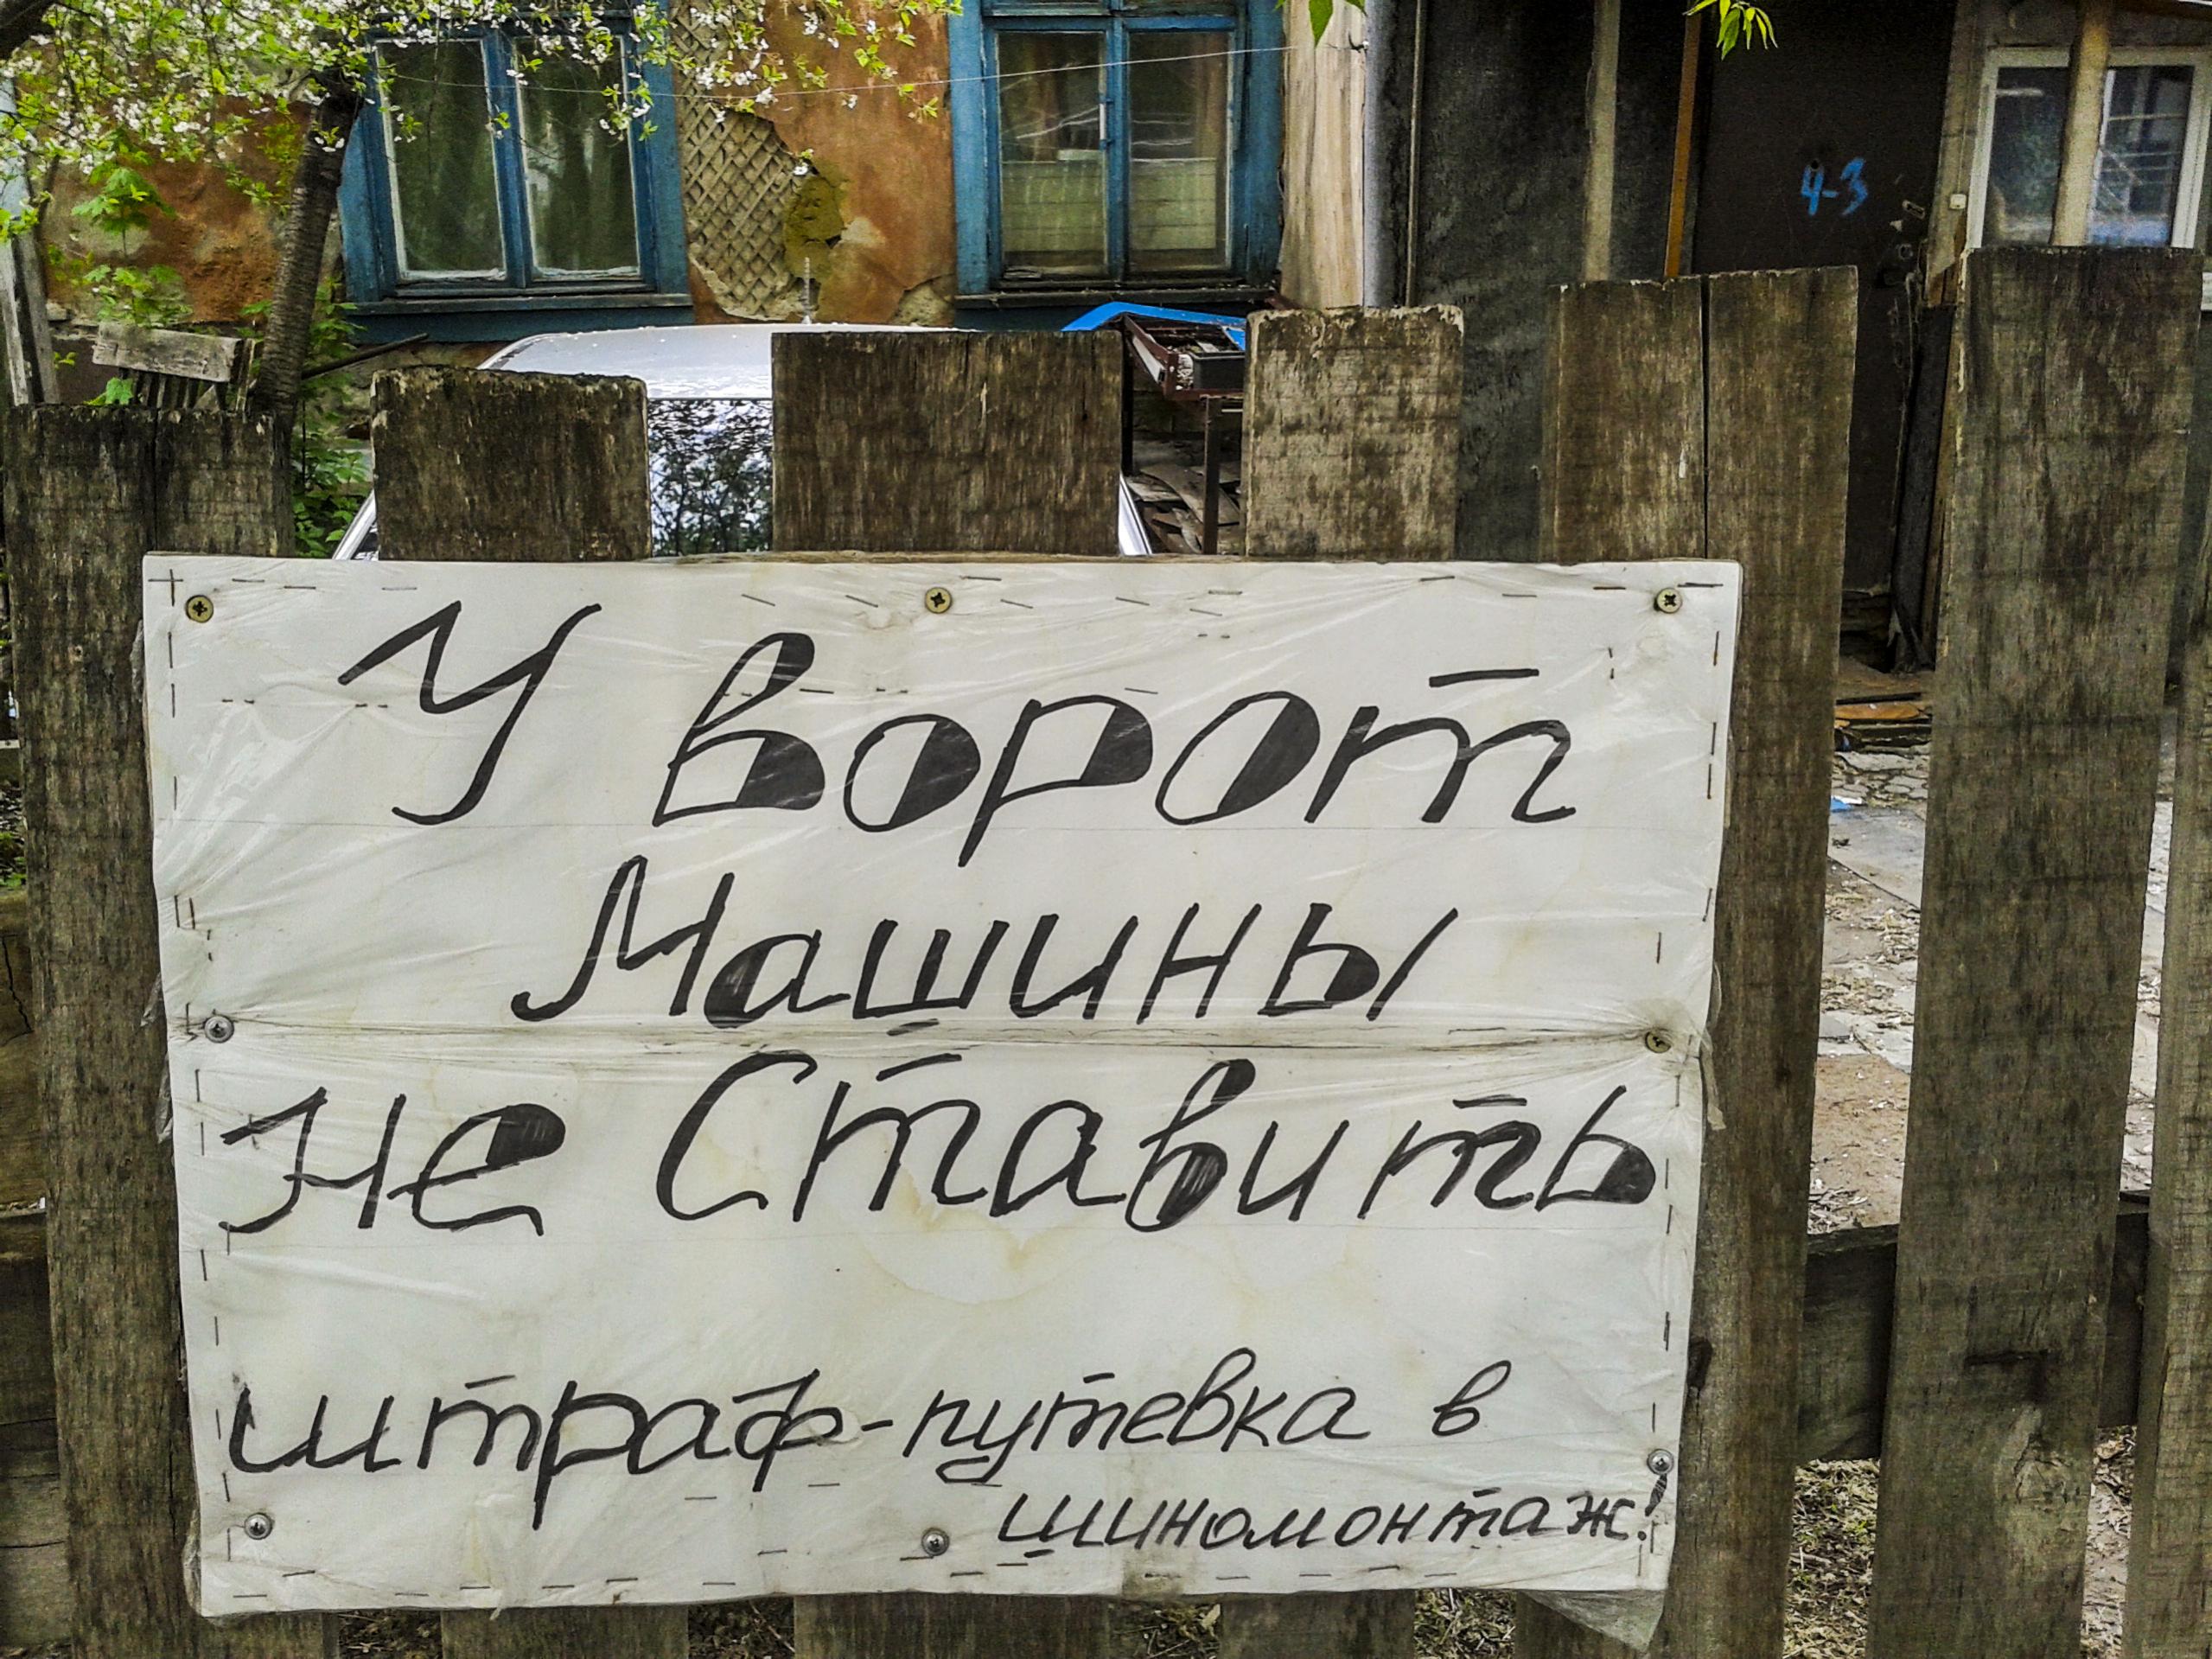 4-3
У ворот
Машины
Не Ставить
штраф-путевка в
шиномонтаж!